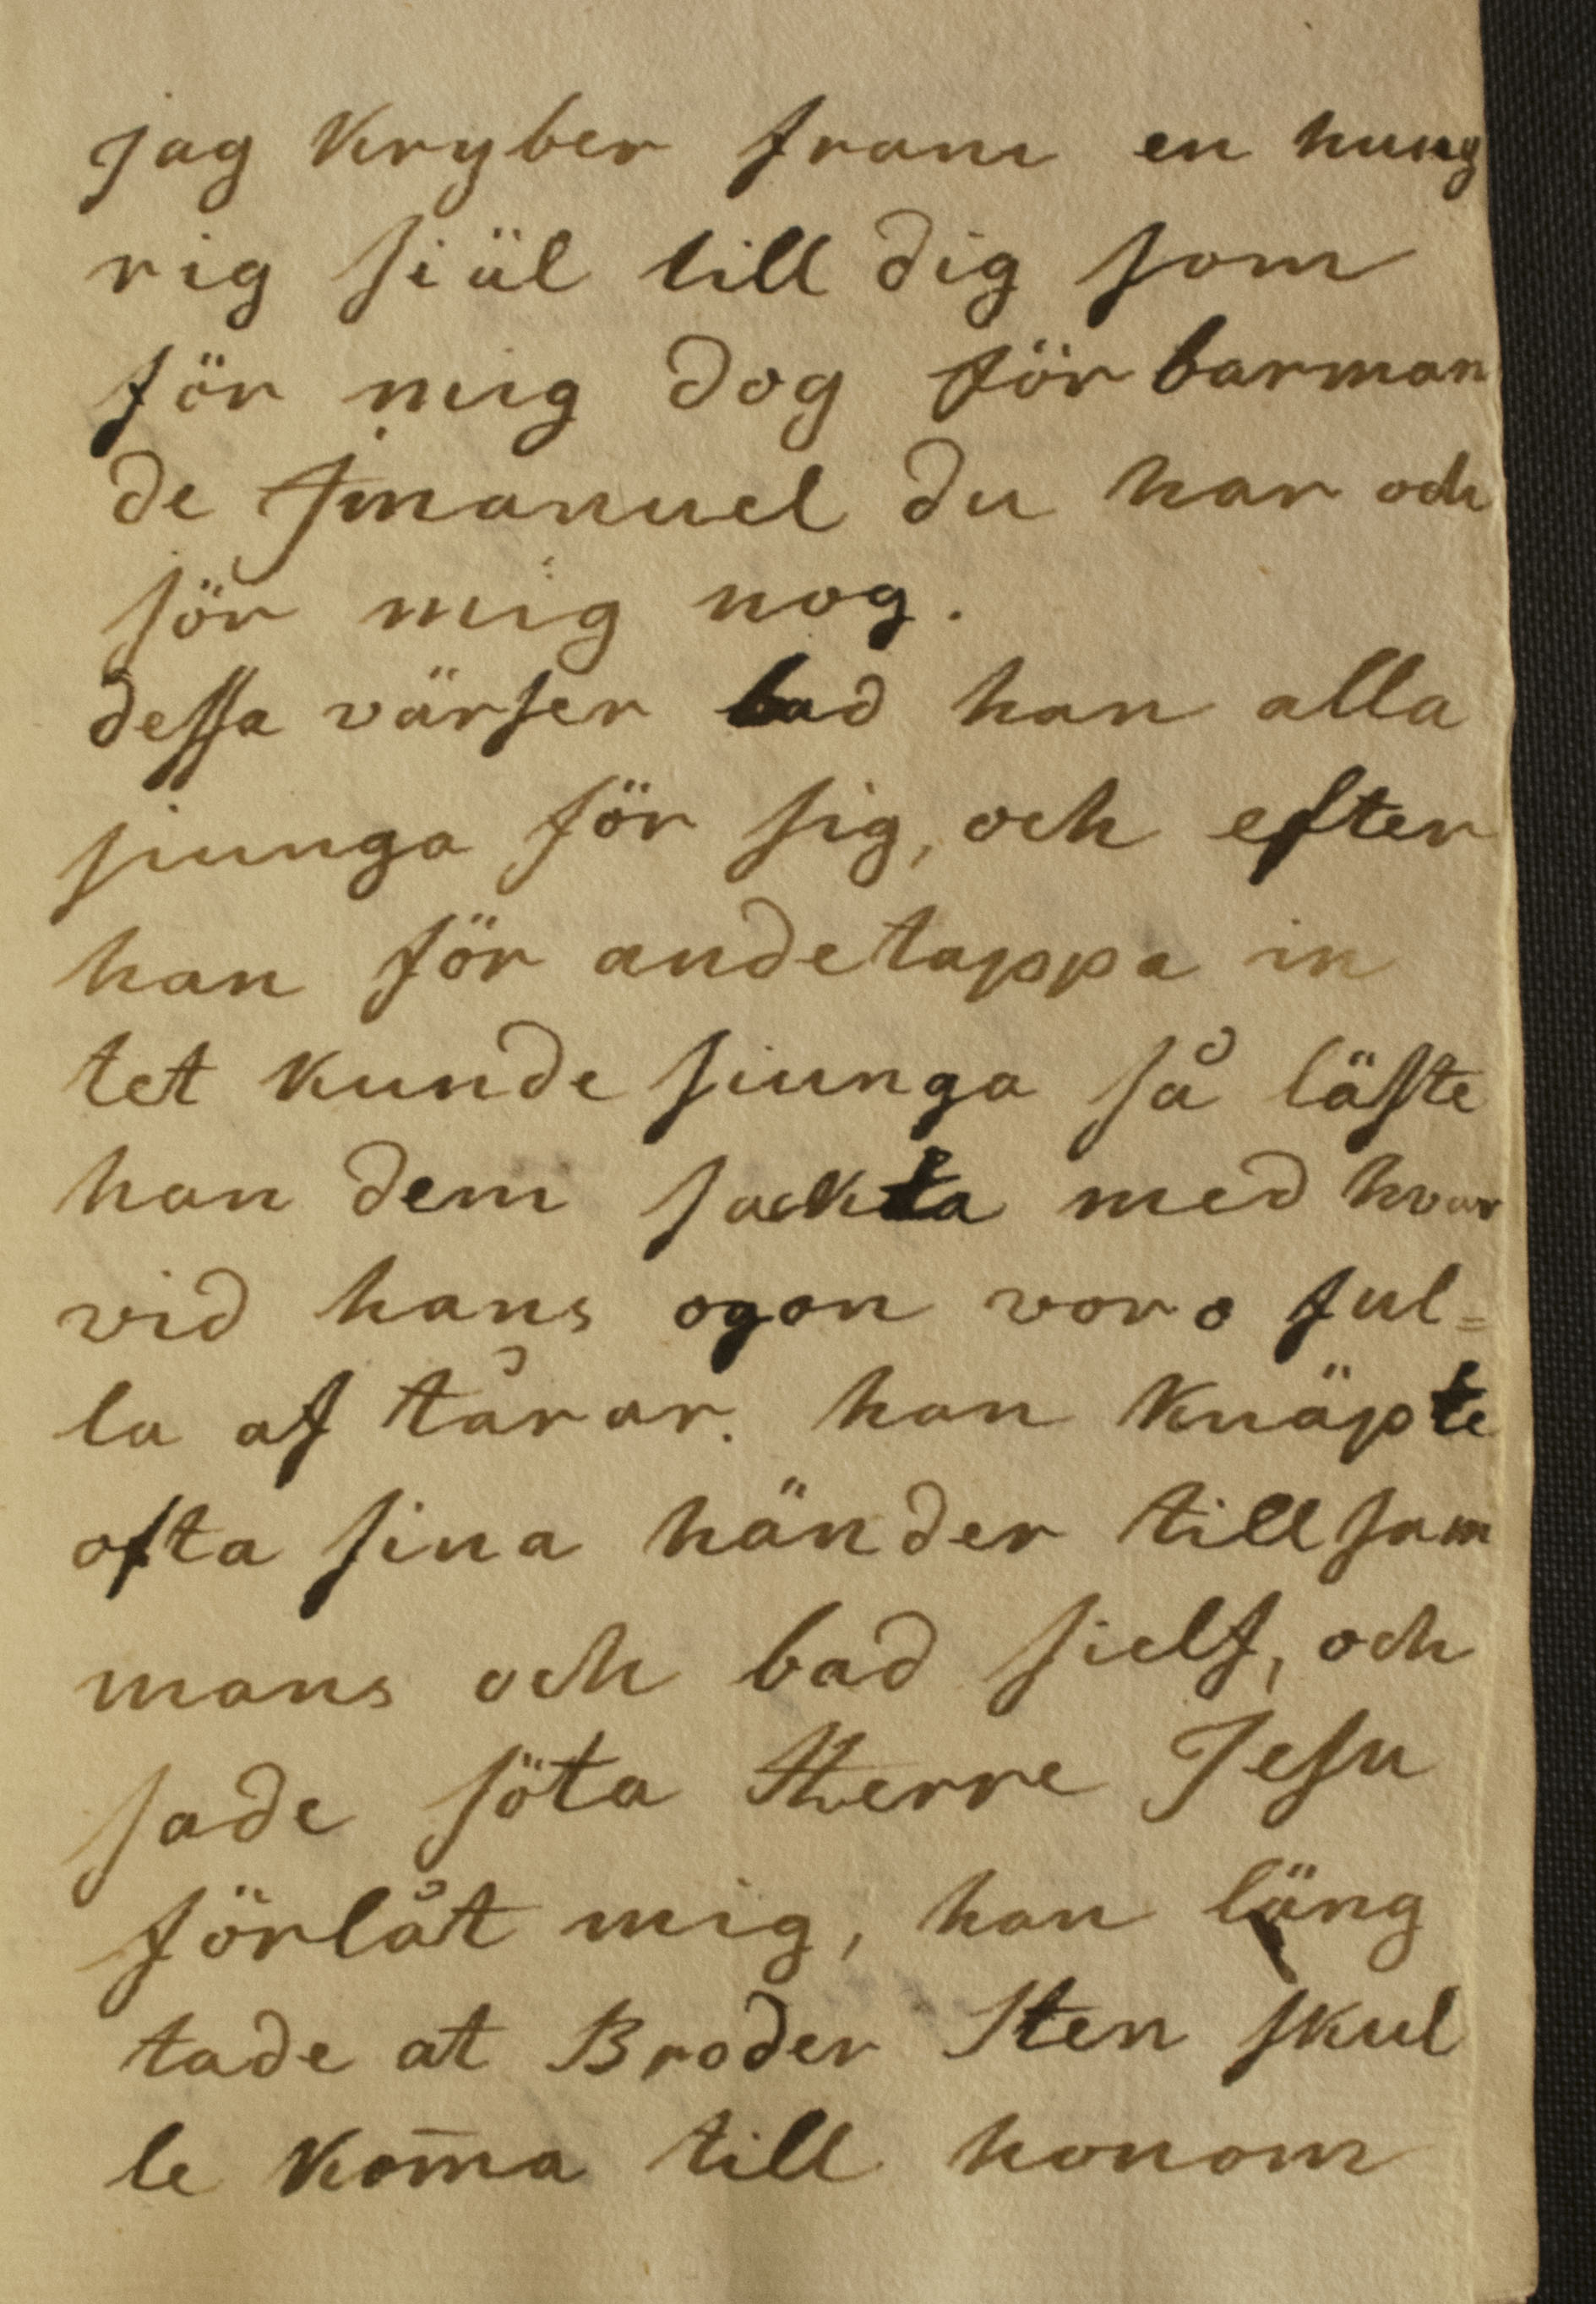 jag kryber fram en hung
rig siäl till dig som
för mig dog förbarman
de Jmanuel du har och
för mig nog.
dessa värser bad han alla
siunga för sig, och efter
han för andetappa in
tet kunde siunga så läste
han dem sackta med hvar
vid hans ogon voro ful=
la af tårar. han knäpte
ofta sina händer tillsam
mans och bad sielf, och
sade söta Herre Jesu
förlåt mig, han läng
tade at Broder Sten skul
le kom̄a till honom